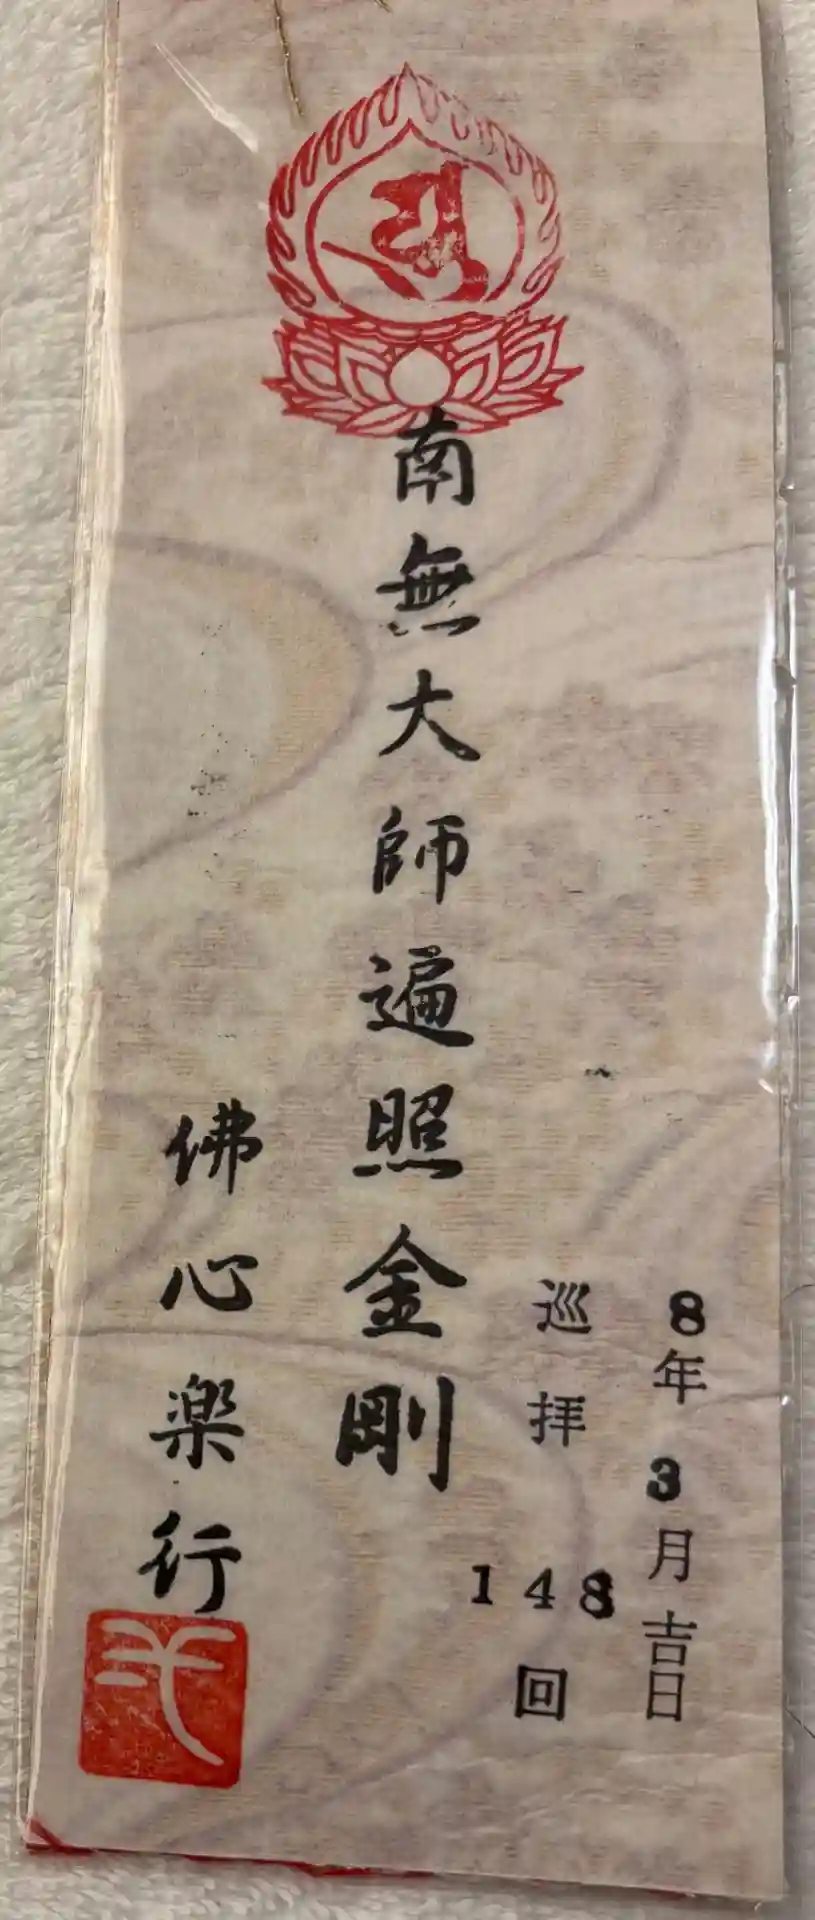 8年3月吉日
巡拝148回
南無大師遍照金剛
佛心楽行